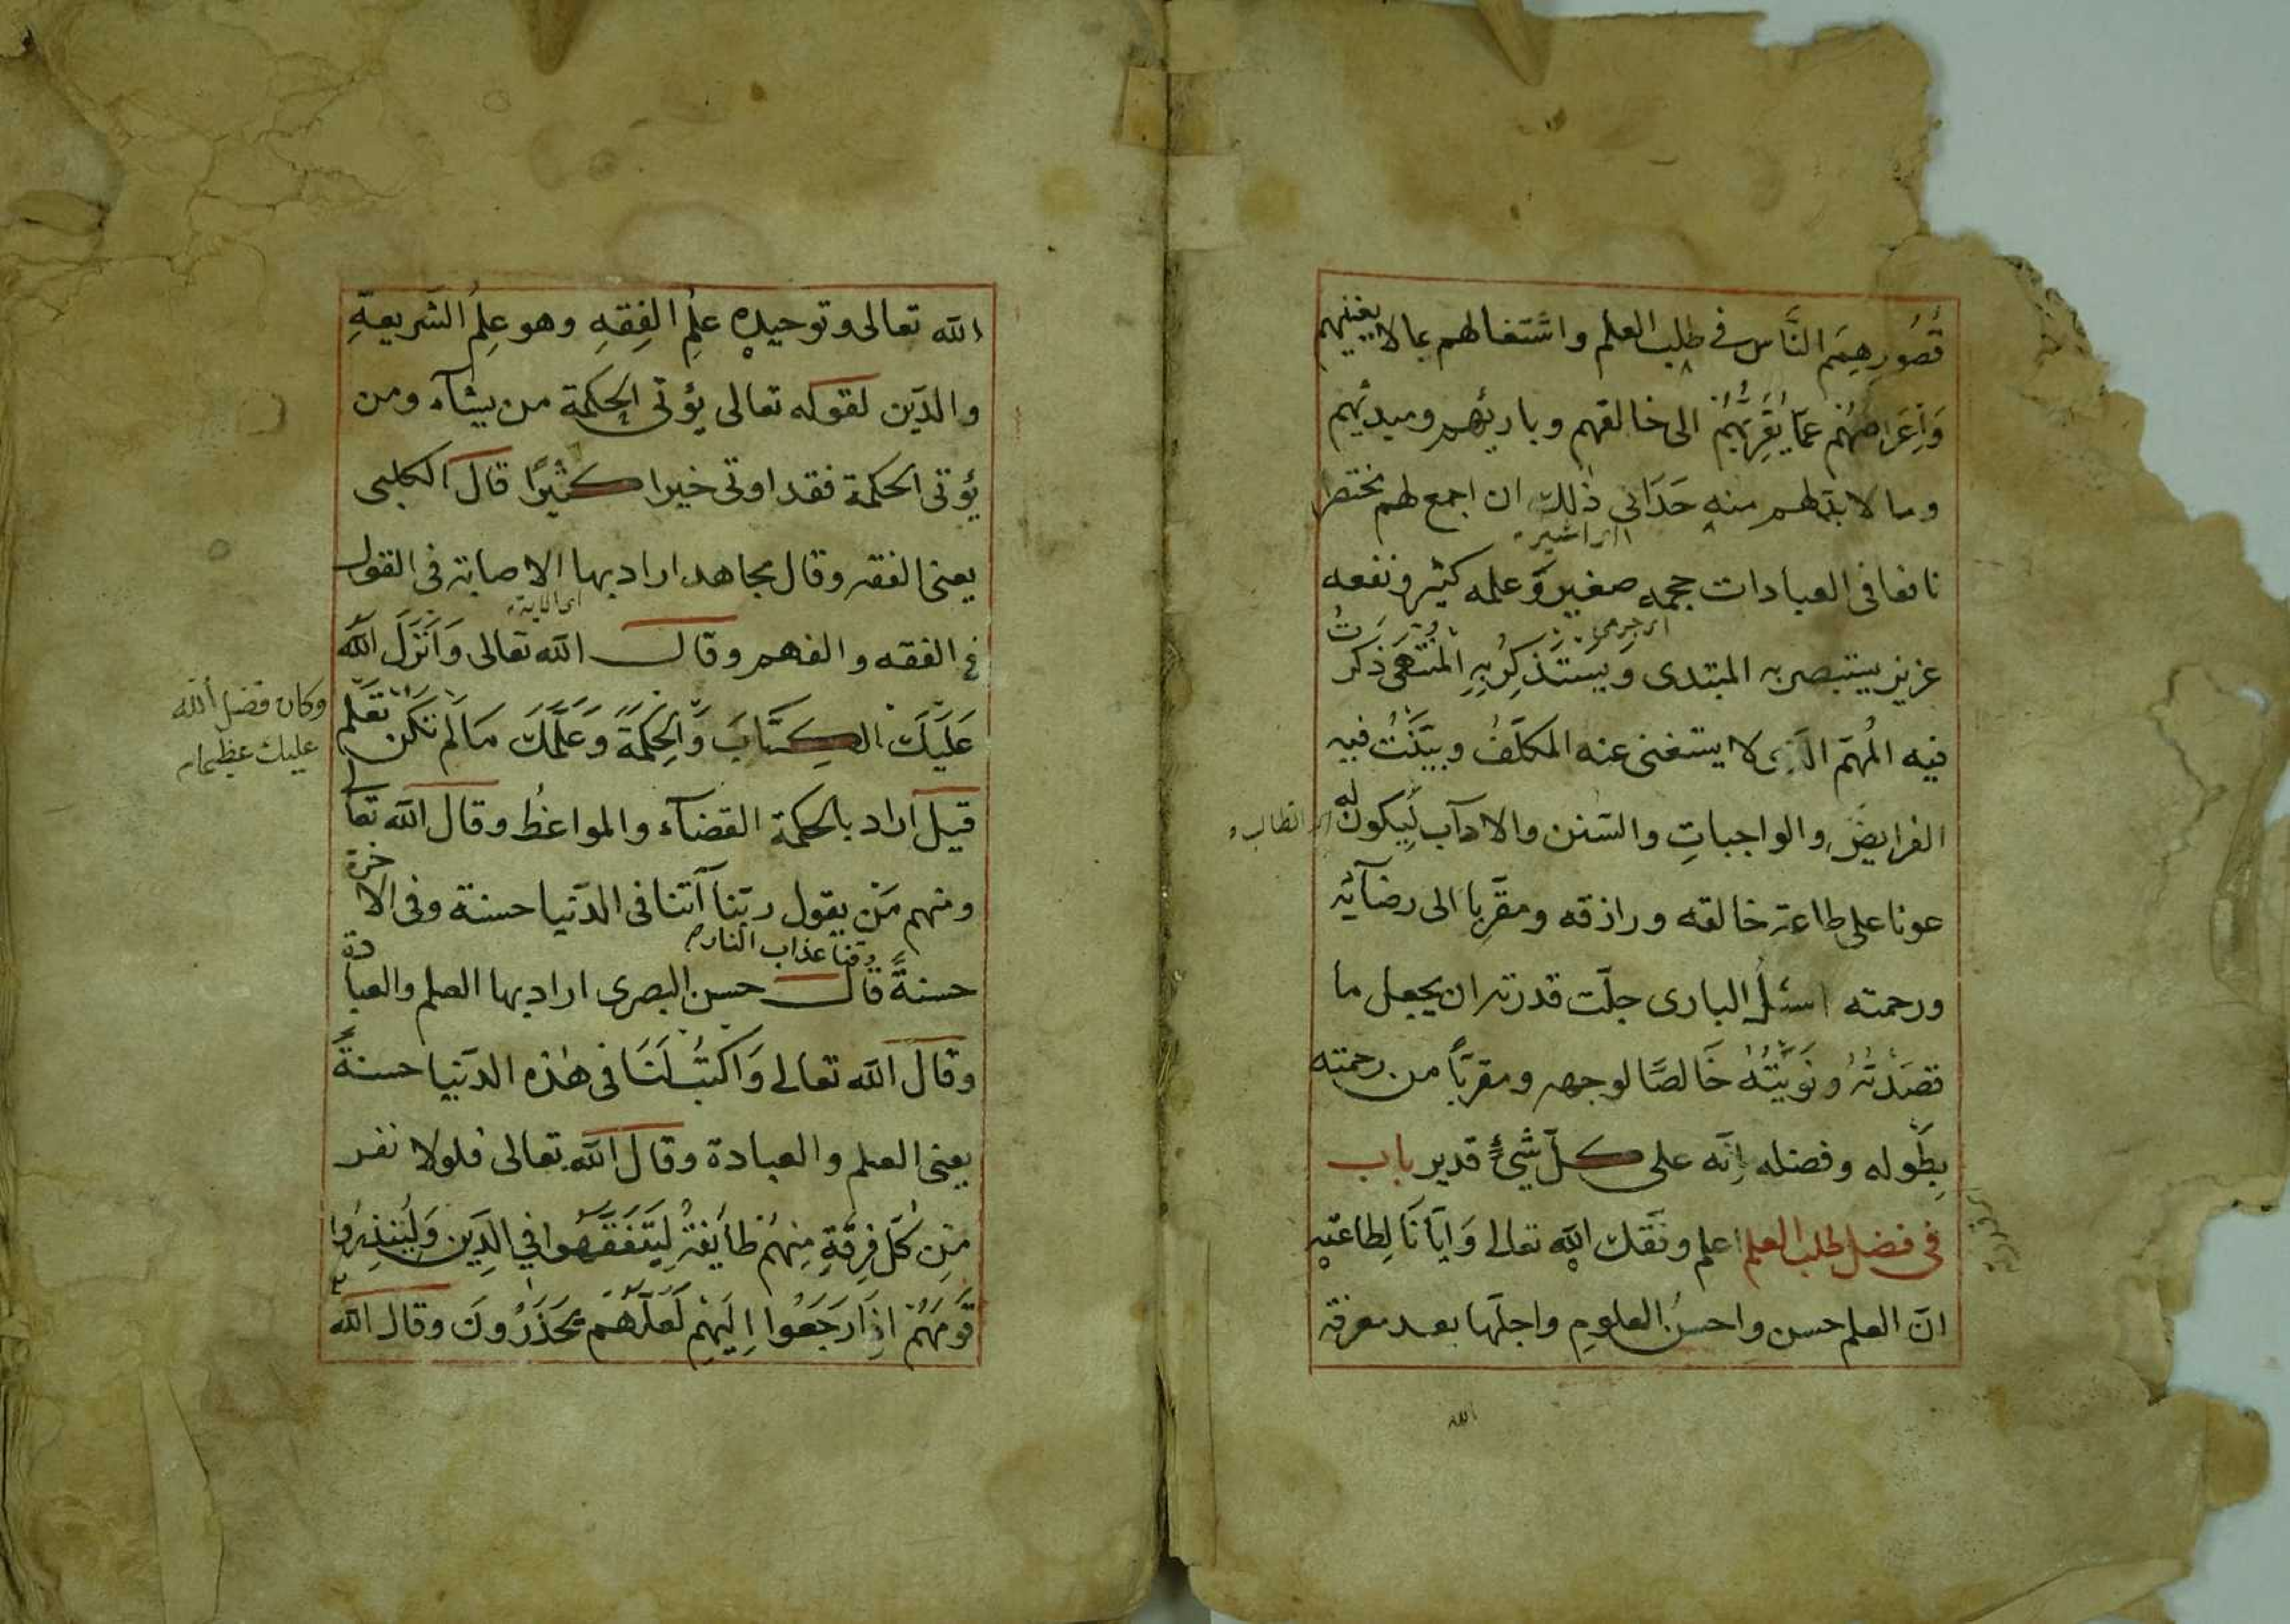 قُصُورِ هِمَمِ النَّاس في طلب العلم واشتغالهم بما لا يعنيهم
وَاِعْرَاضِهُمْ عَمَّا يُقَرِّبُهُمْ الى خالقهم وباريهم ومبديهم
وما لا بد لهم منه حَدَانى ذلك ان اجمع لهم مختصرا
نافعا فى العبادات حجمه صغير وعلمه كثير ونفعه
عزيز يستبصر به المبتدى ويَسْتَذْكِرُ بِهِ المُنْتَهى ذكرت
فيه المُهِمّ الّذى لا يستغنى عنه المكلّفُ وبيّنتُ فيه
الفرايضَ والواجباتِ والسّنن والادآب لِيكون له
عونا على طاعة خالقه ورازقه ومقرِّبا الى رضآئه
ورحمته اسئلُ البارى جلّت قدرته ان يجعل ما
قصَدْتُهُ ونَوَيْتُهُ خَالصًا لوجهه ومقربًا من رحمته
بِطَوله وفضله اِنّه على كلّ شَىْءٍ قدير باب
فى فضل طلب العلم اعلم وفّقك الله تعالى وَاِيّانَا لِطاعتِه
انّ العلم حسن واحسنُ العلومِ واجلّها بعد معرفة
الله
الله تعالى وتوحيدِه عِلمُ الفِقهِ وهو عِلمُ الشّريعةِ
والدّين لقوله تعالى يؤتى الحكمة من يشآء ومن
يؤتى الحكمة فقد اوتى خيرا كثيرًا قال الكلبى
يعنى الفقه وقال مجاهد اراد بها الاصابة فى القول
فى الفقه والفهم وقال الله تعالى وَاَنْزَلَ اللّٰه
عَلَيْكَ الكِتَابَ وَالْحِكْمَةَ وَعَلَّمَكَ مَالَمْ تَكُنْ تَعْلَم
وكان فضل الله
عليك عظيما
قيل اراد بالحكمة القضآء والمواعظُ وقال الله تعالى
ومنهم مَنْ يقول ربّنا آتنا فى الدّنيا حسنة وفى الاخرة
وقنا عذاب النار
حسنةً قال حسن البصرى اراد بها العلم والعبادة
وقال الله تعالى وَاكْتُبْ لَنَا فى هٰذه الدّنيا حسنةً
يعنى العلم والعبادة وقال الله تعالى فلولا نفر
مِنْ كُلِّ فِرْقَةٍ مِنْهُمْ طآئِفَةٌ لِيَتَفَقَّهُوا فِي الدِّينِ وَلِيُنْذِرُوا
قَوْمَهُمْ اِذَا رَجَعُوا اِلَيْهِمْ لَعَلَّهُمْ يَحْذَرُونَ وقال الله